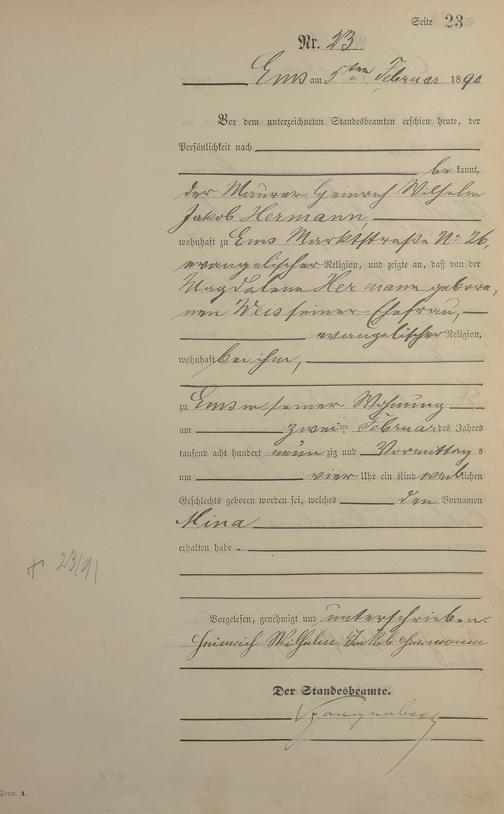 Seite 23
Nr. 23
Ems am 5ten Februar 1890
Vor dem unterzeichneten Standesbeamten erschien heute, der
Persönlichkeit nach
bekannt,
der Maurer Heinrich Wilhelm
Jakob Hermann,
wohnhaft zu Ems Marktstraße No 26,
evangelischer Religion, und zeigte an, daß von der
Magdalena Hermann gebore-
nen Weis seiner Ehefrau,
evangelischer Religion,
wohnhaft bei ihm,
zu Ems in seiner Wohnung
am zweiten Februar des Jahres
tausend acht hundert neunzig und Vormittags
um vier Uhr ein Kind weiblichen
Geschlechts geboren worden sei, welches den Vornamen
Mina
erhalten habe
+ 23/91
Vorgelesen, genehmigt und unterschrieben.
Heinrich Wilhelm Jakob Hermann
Der Standesbeamte.
Form. A.